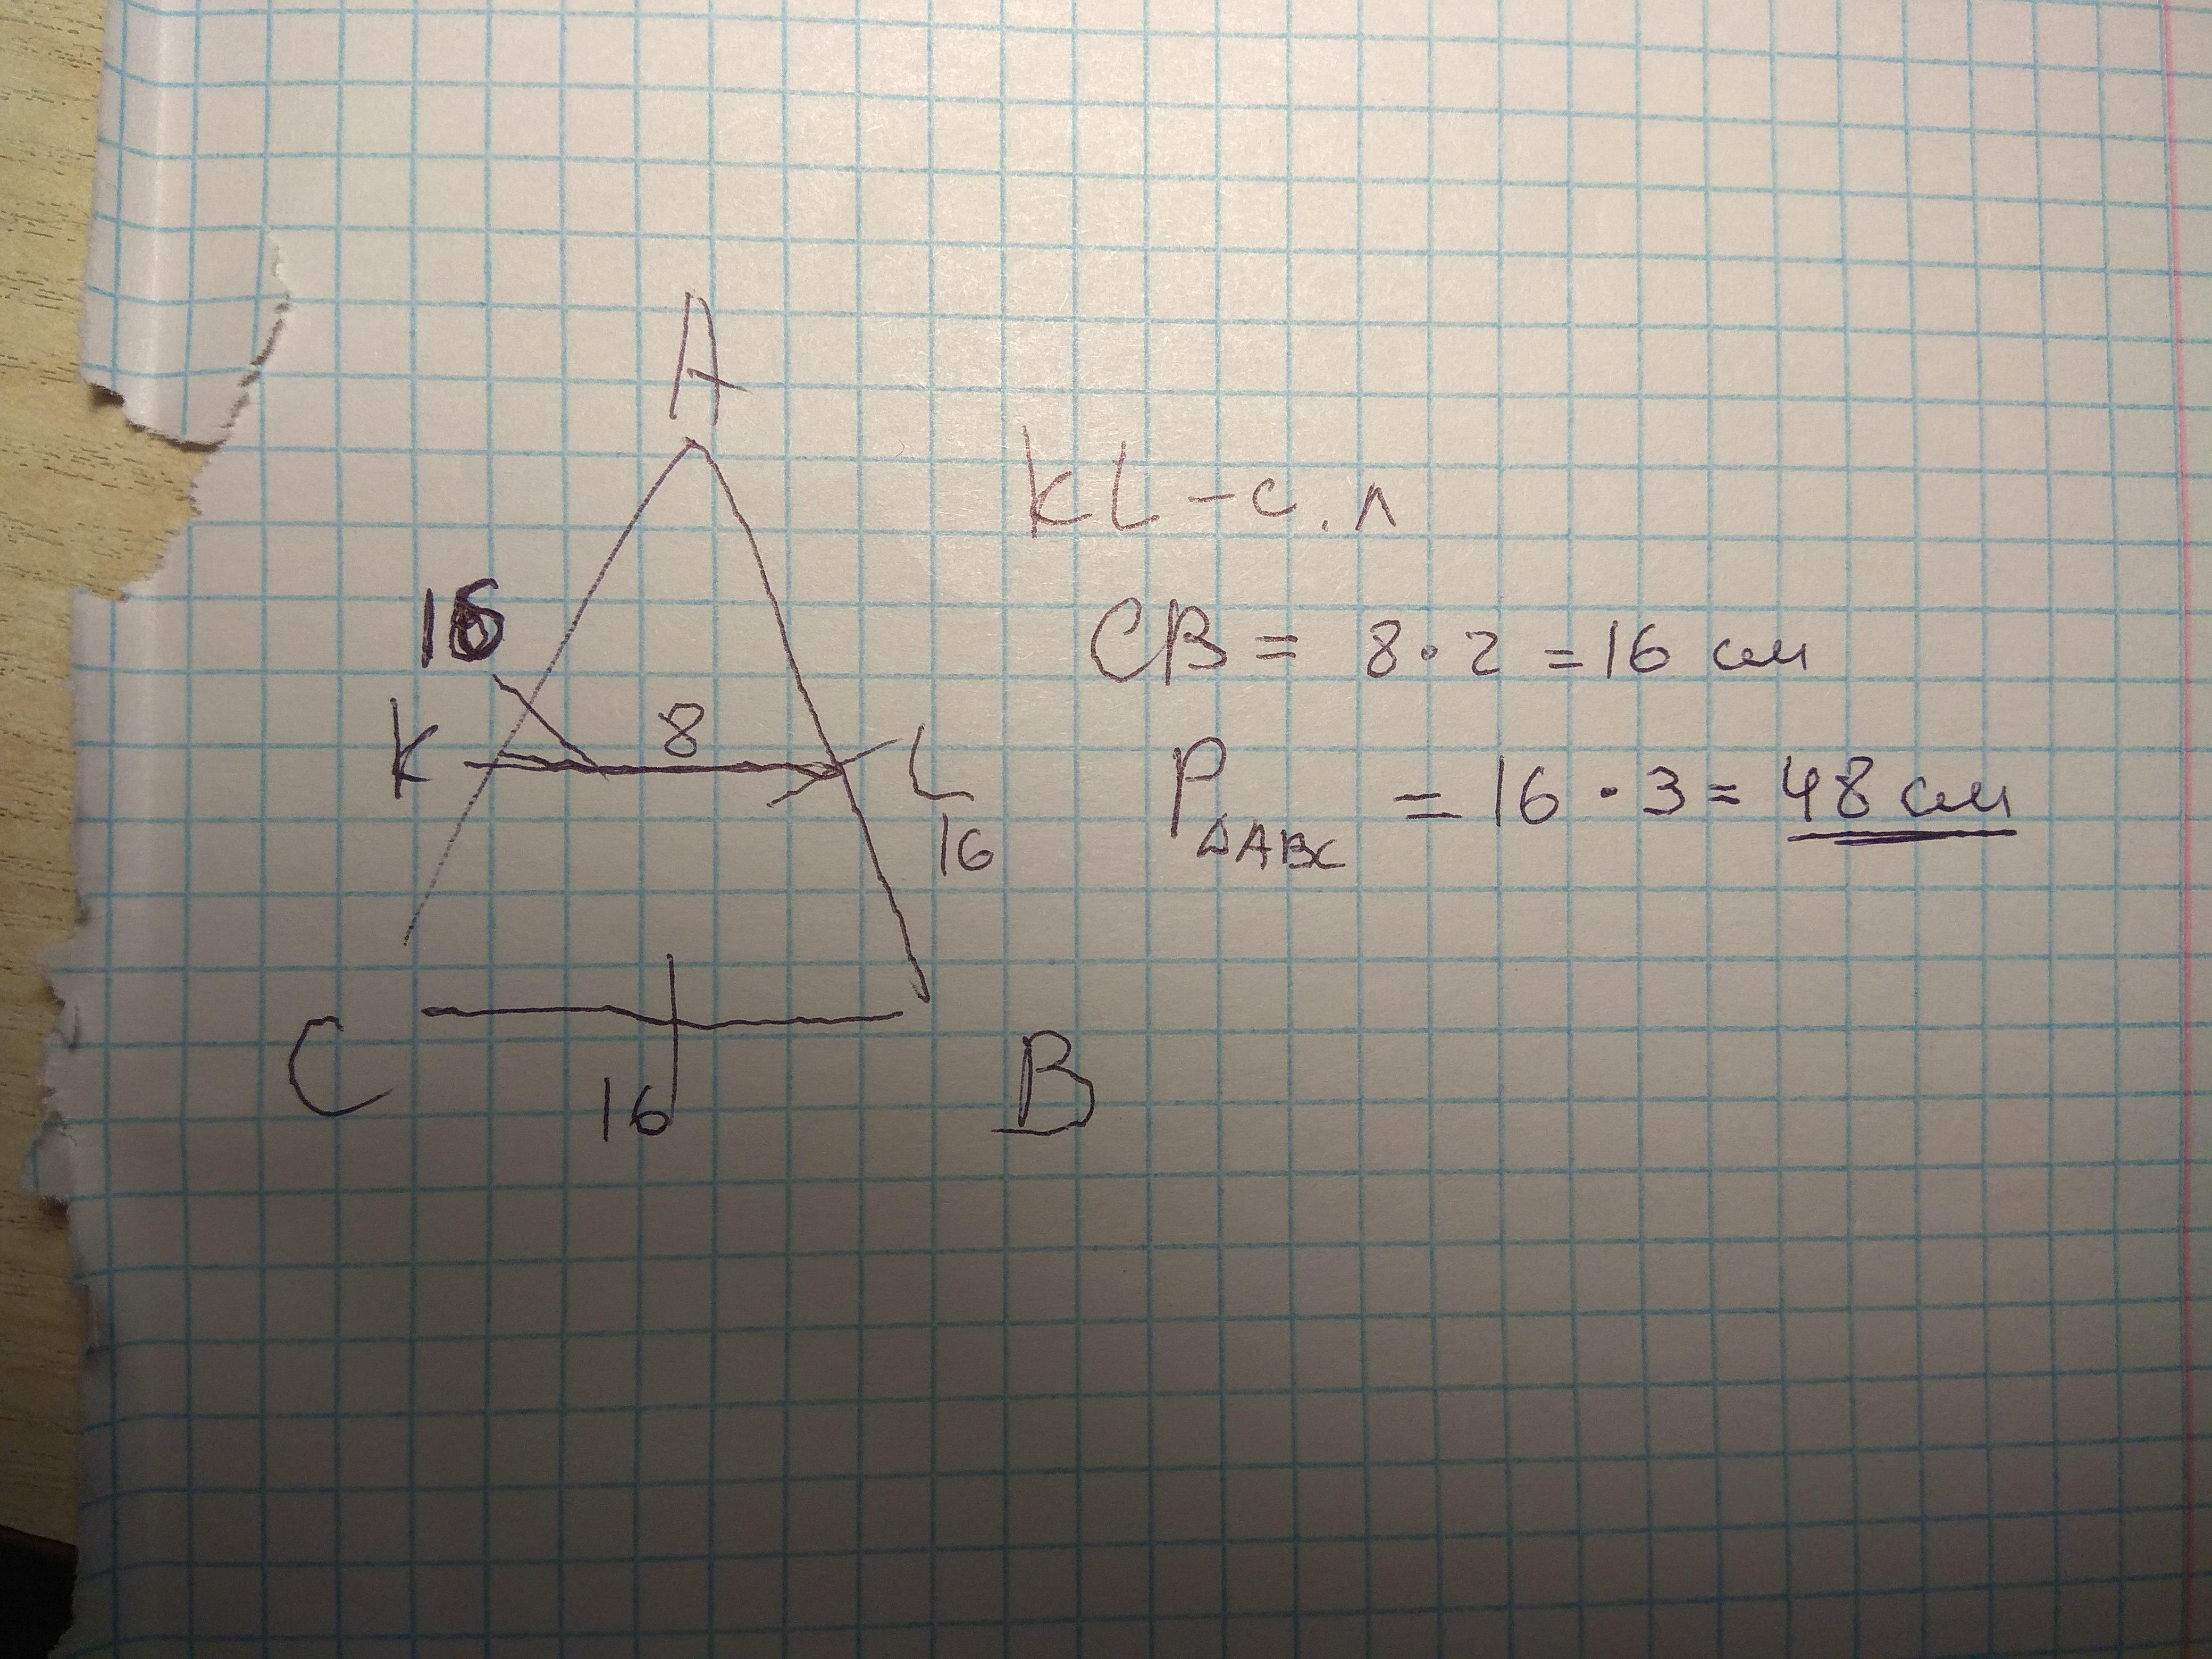 A
KL - с.л
16
CB = 8·2 = 16 см
K 8 L
P△ABC = 16 · 3 = 48 см
16
C B
16